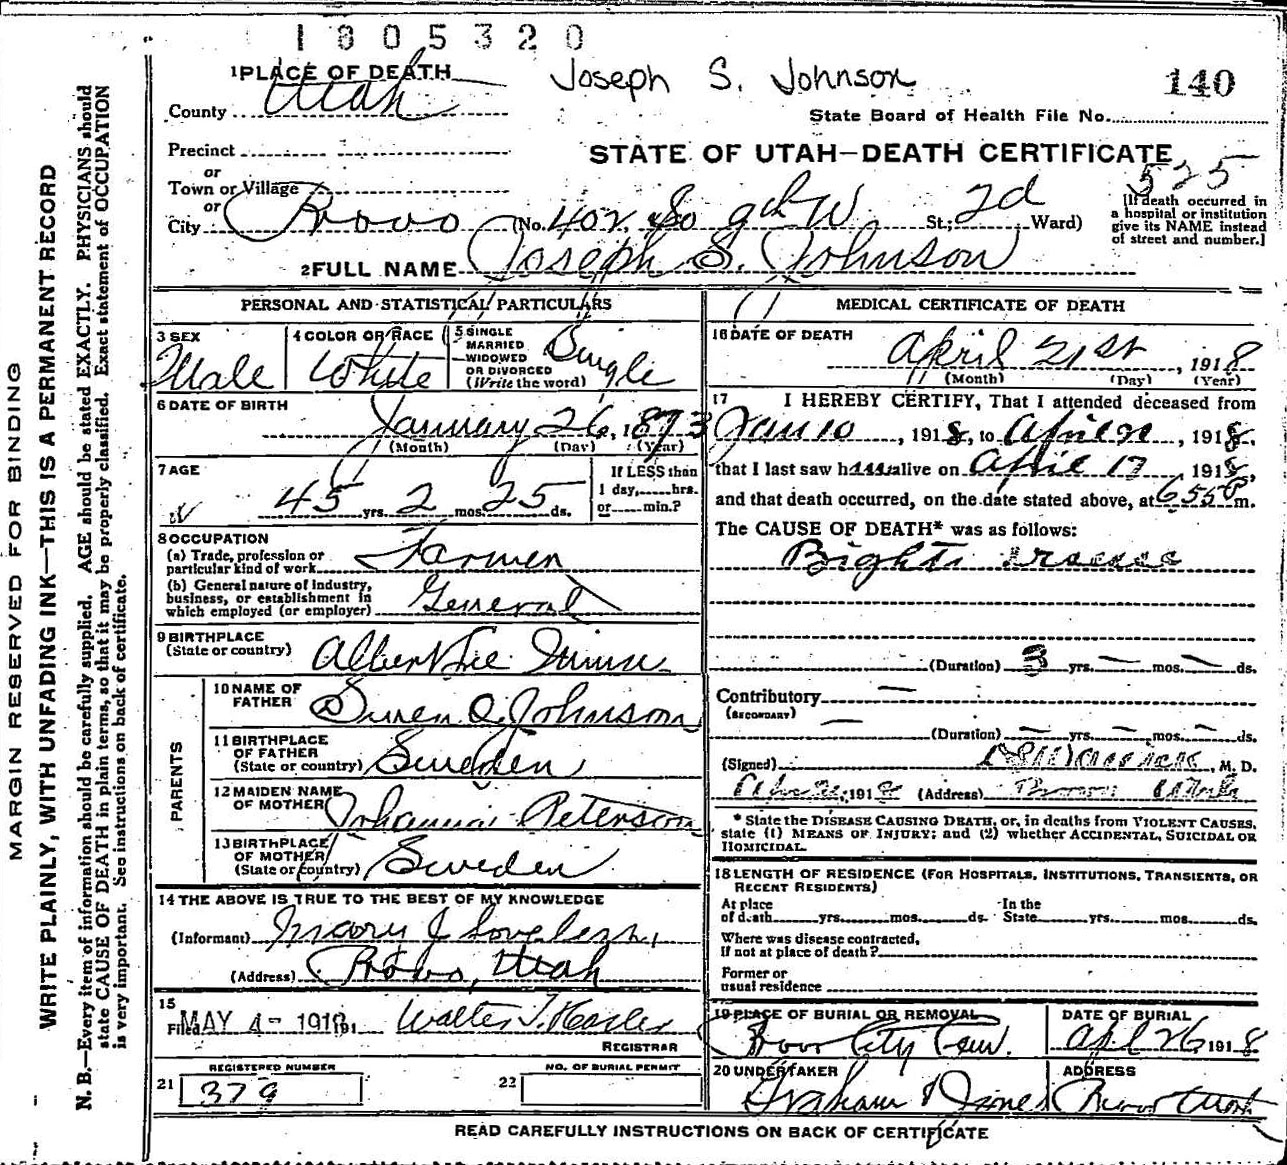 1805320
1 PLACE OF DEATH
Joseph S. Johnson
140
County Utah
State Board of Health File No.
Precinct
STATE OF UTAH—DEATH CERTIFICATE
or
Town or Village
525
or
City Provo (No. 402. So 9th W St.; 2d Ward)
[If death occurred in
a hospital or institution
give its NAME instead
of street and number.]
2 FULL NAME Joseph S. Johnson
PERSONAL AND STATISTICAL PARTICULARS
3 SEX
Male
4 COLOR OR RACE
White
5 SINGLE
MARRIED
WIDOWED
OR DIVORCED
(Write the word)
Single
6 DATE OF BIRTH
January 26, 1873
(Month) (Day) (Year)
7 AGE
45 yrs. 2 mos. 25 ds.
If LESS than
1 day, hrs.
or min.?
8 OCCUPATION
(a) Trade, profession or
particular kind of work Farmer
(b) General nature of industry,
business, or establishment in
which employed (or employer) General
9 BIRTHPLACE
(State or country) Albert Lee Minn
PARENTS
10 NAME OF
FATHER Swen O. Johnson
11 BIRTHPLACE
OF FATHER
(State or country) Sweden
12 MAIDEN NAME
OF MOTHER Johanna Peterson
13 BIRTHPLACE
OF MOTHER
(State or country) Sweden
14 THE ABOVE IS TRUE TO THE BEST OF MY KNOWLEDGE
(Informant) Mary J Loveless
(Address) Provo, Utah
15
Filed MAY 4- 1918, Walter T. Hasler
REGISTRAR
REGISTERED NUMBER
21 379
NO. OF BURIAL PERMIT
22
MEDICAL CERTIFICATE OF DEATH
16 DATE OF DEATH
April 21st, 1918
(Month) (Day) (Year)
17 I HEREBY CERTIFY, That I attended deceased from
Jan 10, 1918, to April 21, 1918,
that I last saw him alive on April 17, 1918,
and that death occurred, on the date stated above, at 6 55 P m.
The CAUSE OF DEATH* was as follows:
Brights
(Duration) 3 yrs. — mos. — ds.
Contributory —
(SECONDARY)
— (Duration) — yrs. — mos. — ds.
(Signed) , M. D.
1918 (Address) Provo Utah
* State the DISEASE CAUSING DEATH, or, in deaths from VIOLENT CAUSES,
state (1) MEANS OF INJURY; and (2) whether ACCIDENTAL, SUICIDAL OR
HOMICIDAL.
18 LENGTH OF RESIDENCE (FOR HOSPITALS, INSTITUTIONS, TRANSIENTS, OR
RECENT RESIDENTS)
At place
of death yrs. mos. ds.
In the
State yrs. mos. ds.
Where was disease contracted,
If not at place of death?
Former or
usual residence
19 PLACE OF BURIAL OR REMOVAL
Provo City Cem.
DATE OF BURIAL
Apl 26, 1918
20 UNDERTAKER
Graham & Jones
ADDRESS
Provo Utah
READ CAREFULLY INSTRUCTIONS ON BACK OF CERTIFICATE
MARGIN RESERVED FOR BINDING
WRITE PLAINLY, WITH UNFADING INK—THIS IS A PERMANENT RECORD
N. B.—Every item of information should be carefully supplied. AGE should be stated EXACTLY. PHYSICIANS should
state CAUSE OF DEATH in plain terms, so that it may be properly classified. Exact statement of OCCUPATION
is very important. See instructions on back of certificate.